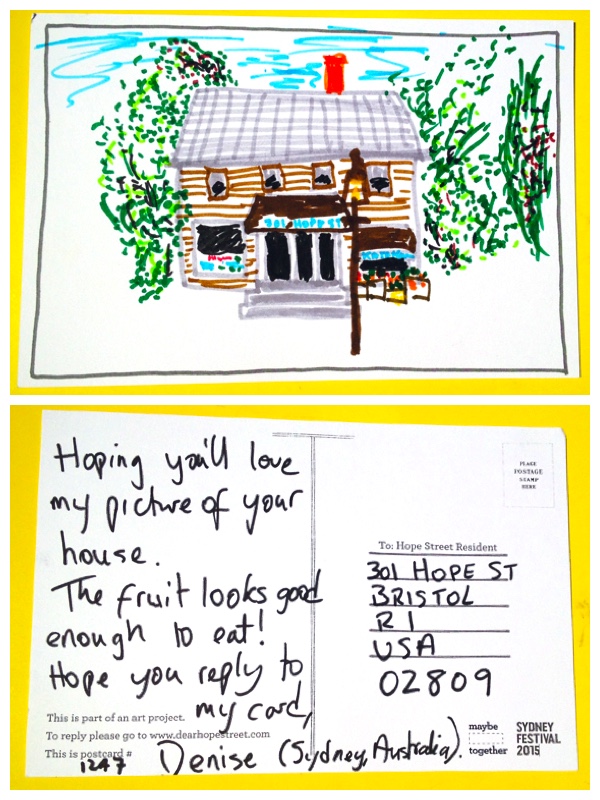 301 HOPE ST
Hoping you'll love
my picture of your
house.
The fruit looks good
enough to eat!
Hope you reply to
my card,
Denise (Sydney, Australia).
This is part of an art project.
To reply please go to www.dearhopestreet.com
This is postcard #
1247
PLACE
POSTAGE
STAMP
HERE
To: Hope Street Resident
301 HOPE ST
BRISTOL
RI
USA
02809
maybe
together
SYDNEY
FESTIVAL
2015